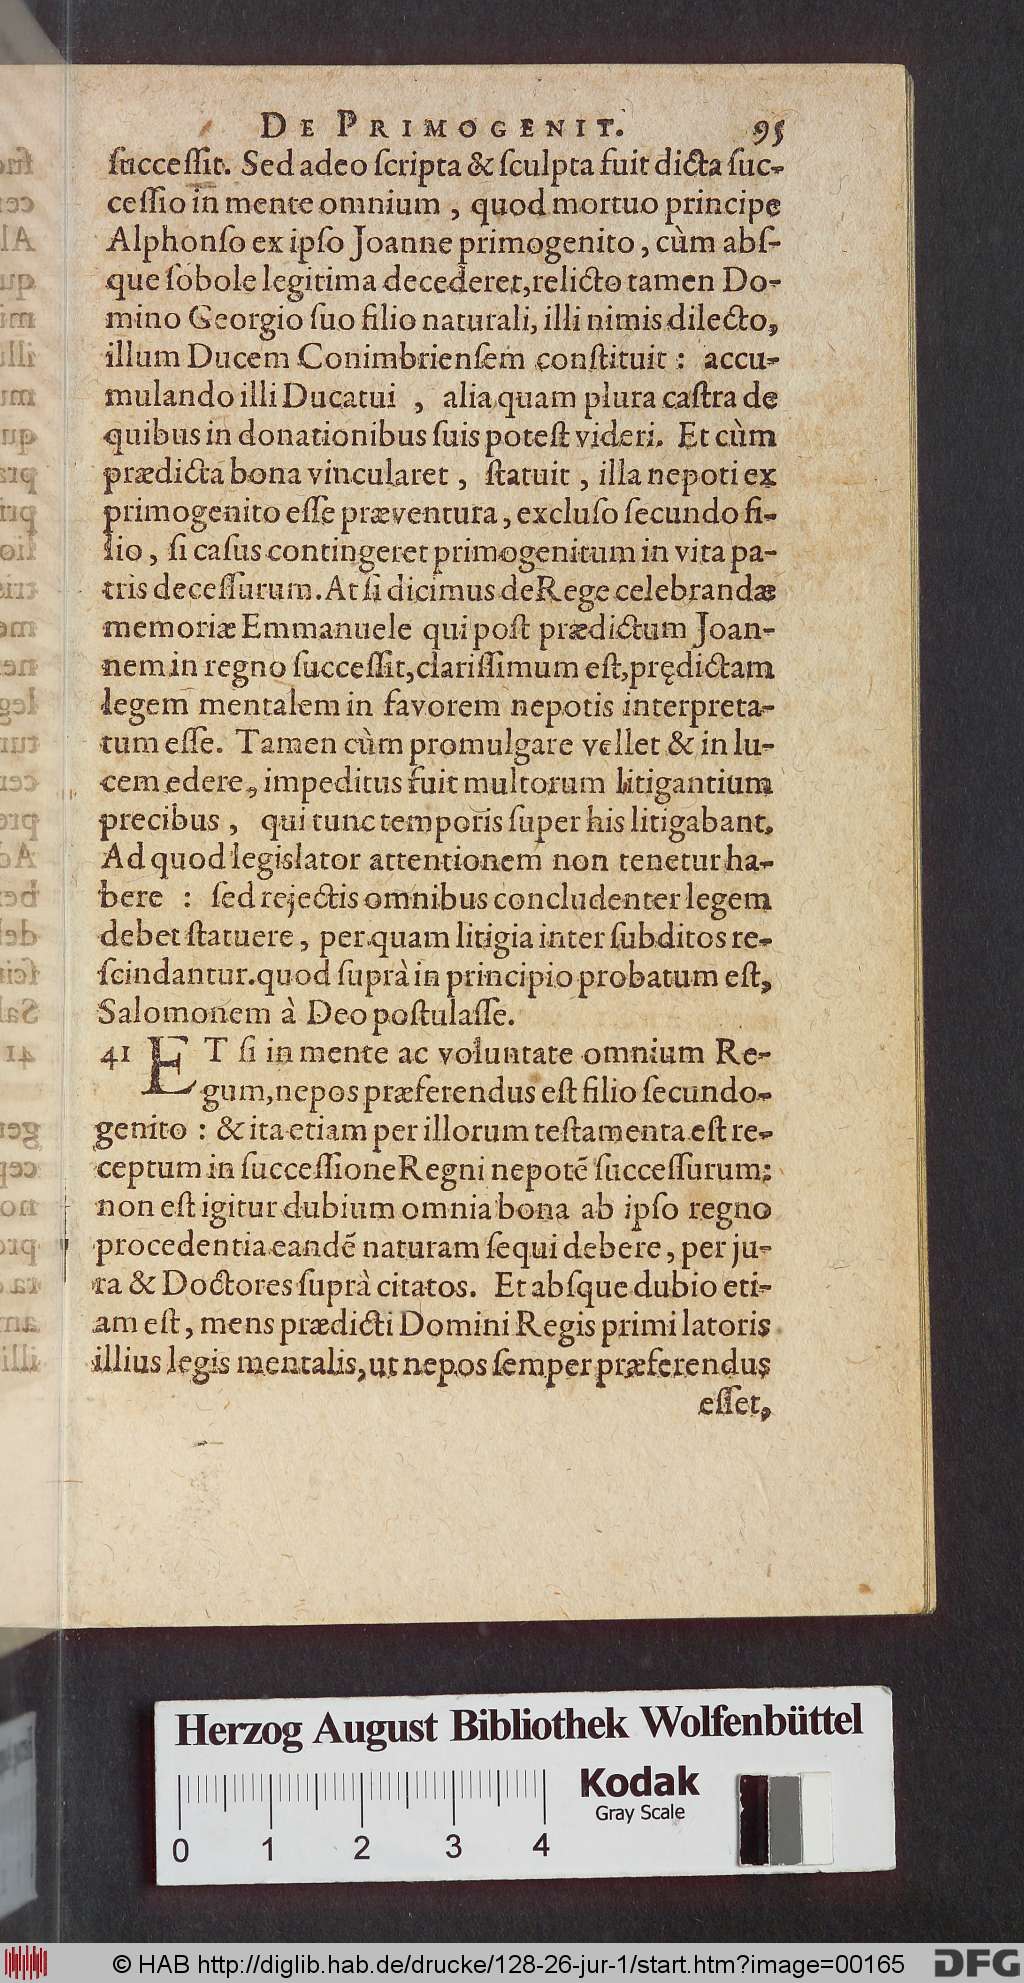 DE PRIMOGENIT. 95
ſucceſſit. Sed adeo ſcripta & ſculpta fuit dicta ſuc-
ceſſio in mente omnium , quod mortuo principe
Alphonſo ex ipſo Joanne primogenito, cùm abſ-
que ſobole legitima decederet, relicto tamen Do-
mino Georgio ſuo filio naturali, illi nimis dilecto,
illum Ducem Conimbrienſem conſtituit : accu-
mulando illi Ducatui , alia quam plura caſtra de
quibus in donationibus ſuis poteſt videri. Et cùm
prædicta bona vincularet , ſtatuit , illa nepoti ex
primogenito eſſe præventura, excluſo ſecundo fi-
lio, ſi caſus contingeret primogenitum in vita pa-
tris deceſſurum. At ſi dicimus de Rege celebrandæ
memoriæ Emmanuele qui poſt prædictum Joan-
nem in regno ſucceſſit, clariſſimum eſt, prędictam
legem mentalem in favorem nepotis interpreta-
tum eſſe. Tamen cùm promulgare vellet & in lu-
cem edere, impeditus fuit multorum litigantium
precibus , qui tunc temporis ſuper his litigabant.
Ad quod legislator attentionem non tenetur ha-
bere : ſed rejectis omnibus concludenter legem
debet ſtatuere, per quam litigia inter ſubditos re-
ſcindantur. quod ſuprà in principio probatum eſt,
Salomonem à Deo poſtulaſſe.
41 ET ſi in mente ac voluntate omnium Re-
gum, nepos præferendus eſt filio ſecundo-
genito : & ita etiam per illorum teſtamenta eſt re-
ceptum in ſucceſſione Regni nepotē ſucceſſurum:
non eſt igitur dubium omnia bona ab ipſo regno
procedentia eandē naturam ſequi debere, per ju-
ra & Doctores ſuprà citatos. Et abſque dubio eti-
am eſt, mens prædicti Domini Regis primi latoris
illius legis mentalis, ut nepos ſemper præferendus
eſſet,
Herzog August Bibliothek Wolfenbüttel
Kodak
Gray Scale
0 1 2 3 4
© HAB http://diglib.hab.de/drucke/128-26-jur-1/start.htm?image=00165
DFG